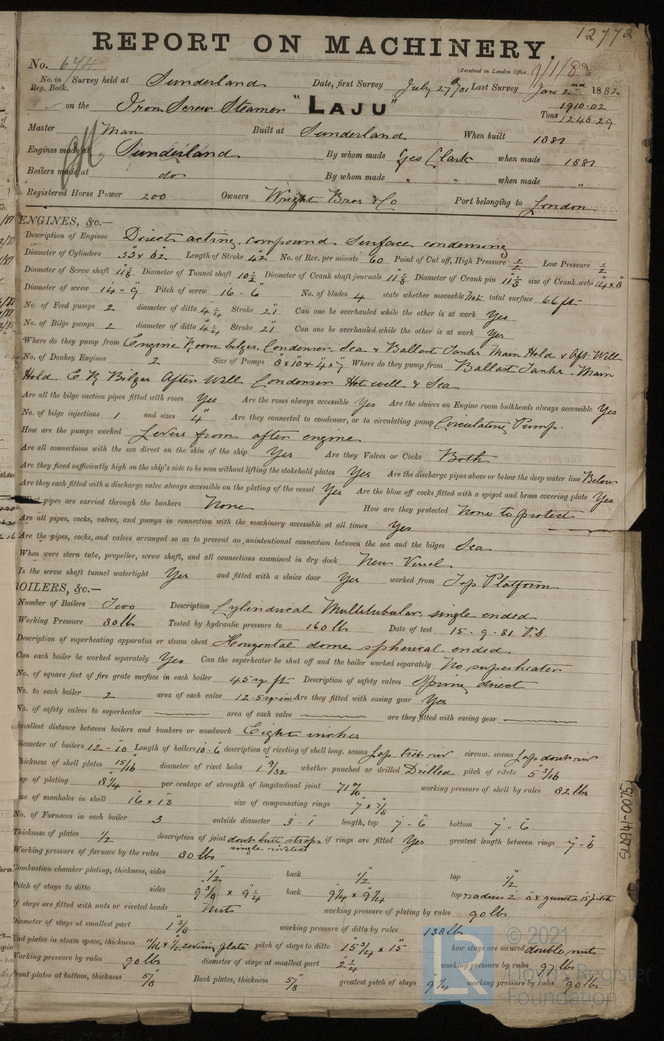 12772
REPORT ON MACHINERY
No. 674
(Received in London Office 9/1/82
No. in Reg. Book. Survey held at Sunderland Date, first Survey July 27th/81 Last Survey Jan 2nd 1882
on the Iron Screw Steamer "LAJU" Tons 1910.02 1246.29
Master Man Built at Sunderland When built 1881
Engines made at Sunderland By whom made Geo Clark when made 1881
Boilers made at do By whom made " " when made "
Registered Horse Power 200 Owners Wright Bros & Co Port belonging to London
ENGINES, &c.—
Description of Engines Direct acting, compound. Surface condensing
Diameter of Cylinders Length of Stroke 42 No. of Rev. per minute 60 Point of Cut off, High Pressure 1/2 Low Pressure 1/2
Diameter of Screw shaft Diameter of Tunnel shaft 10 1/2 Diameter of Crank shaft journals Diameter of Crank pin size of Crank webs
Diameter of screw 14-9 Pitch of screw 16-6 No. of blades 4 state whether moveable Not total surface 66 ft.
No. of Feed pumps 2 diameter of ditto 4 1/4 Stroke 21 Can one be overhauled while the other is at work Yes
No. of Bilge pumps 2 diameter of ditto 4 1/4 Stroke 21 Can one be overhauled while the other is at work Yes
Where do they pump from Engine Room bilges. Condenser, Sea & Ballast Tanks Main Hold & Aft. Well
No. of Donkey Engines 2 Size of Pumps Where do they pump from Ballast Tanks. Main
Hold. E R Bilges After Well Condenser Hot well & Sea
Are all the bilge suction pipes fitted with roses Yes Are the roses always accessible Yes Are the sluices on Engine room bulkheads always accessible Yes
No. of bilge injections 1 and sizes 4" Are they connected to condenser, or to circulating pump Circulating Pump.
How are the pumps worked Levers from after engine
Are all connections with the sea direct on the skin of the ship Yes Are they Valves or Cocks Both
Are they fixed sufficiently high on the ship's side to be seen without lifting the stokehold plates Yes Are the discharge pipes above or below the deep water line Below
Are they each fitted with a discharge valve always accessible on the plating of the vessel Yes Are the blow off cocks fitted with a spigot and brass covering plate Yes
pipes are carried through the bunkers None How are they protected None to protect
Are all pipes, cocks, valves, and pumps in connection with the machinery accessible at all times Yes
Are the pipes, cocks, and valves arranged so as to prevent an unintentional connection between the sea and the bilges Sea
When were stern tube, propeller, screw shaft, and all connections examined in dry dock New Vessel
Is the screw shaft tunnel watertight Yes and fitted with a sluice door Yes worked from Top Platform
BOILERS, &c.—
Number of Boilers Two Description Cylindrical Multitubular. single ended
Working Pressure 80 lbs Tested by hydraulic pressure to 160 lbs Date of test 15-9-81
Description of superheating apparatus or steam chest Horizontal dome spherical ended
Can each boiler be worked separately Yes Can the superheater be shut off and the boiler worked separately No superheater
No. of square feet of fire grate surface in each boiler 45 sq ft. Description of safety valves Spring direct
No. to each boiler 2 area of each valve 12.5 sq ins Are they fitted with easing gear Yes
No. of safety valves to superheater area of each valve are they fitted with easing gear
Smallest distance between boilers and bunkers or woodwork Eight inches
Diameter of boilers 12-10 Length of boilers 10-6 description of riveting of shell long. seams Lap treb riv circum. seams Lap doub riv
Thickness of shell plates 15/16 diameter of rivet holes 1 9/32 whether punched or drilled Drilled pitch of rivets 5 3/16
Lap of plating 8 3/4 per centage of strength of longitudinal joint 71% working pressure of shell by rules 82 lbs
Size of manholes in shell 16 x 12 size of compensating rings 7 x 7/8
No. of Furnaces in each boiler 3 outside diameter 3 1 length, top 7-6 bottom 7-6
Thickness of plates 1/2 description of joint doub butt straps single riveted if rings are fitted Yes greatest length between rings 7-6
Working pressure of furnace by the rules 80 lbs
Combustion chamber plating, thickness, sides 1/2 back 1/2 top 1/2
Pitch of stays to ditto sides 9 3/8 x 9 1/4 back 9 1/4 x 9 1/4 top
If stays are fitted with nuts or riveted heads Nuts working pressure of plating by rules 90 lbs
Diameter of stays at smallest part 1 3/8 working pressure of ditto by rules
End plates in steam space, thickness pitch of stays to ditto 15 3/4 x 15 how stays are secured double nuts
Working pressure by rules 90 lbs diameter of stays at smallest part 2 1/4 working pressure by rules
Front plates at bottom, thickness 5/8 Back plates, thickness 5/8 greatest pitch of stays 9 1/4 working pressure by rules 90 lbs
SLD941-0075
© 2021
Lloyd's Register
Foundation